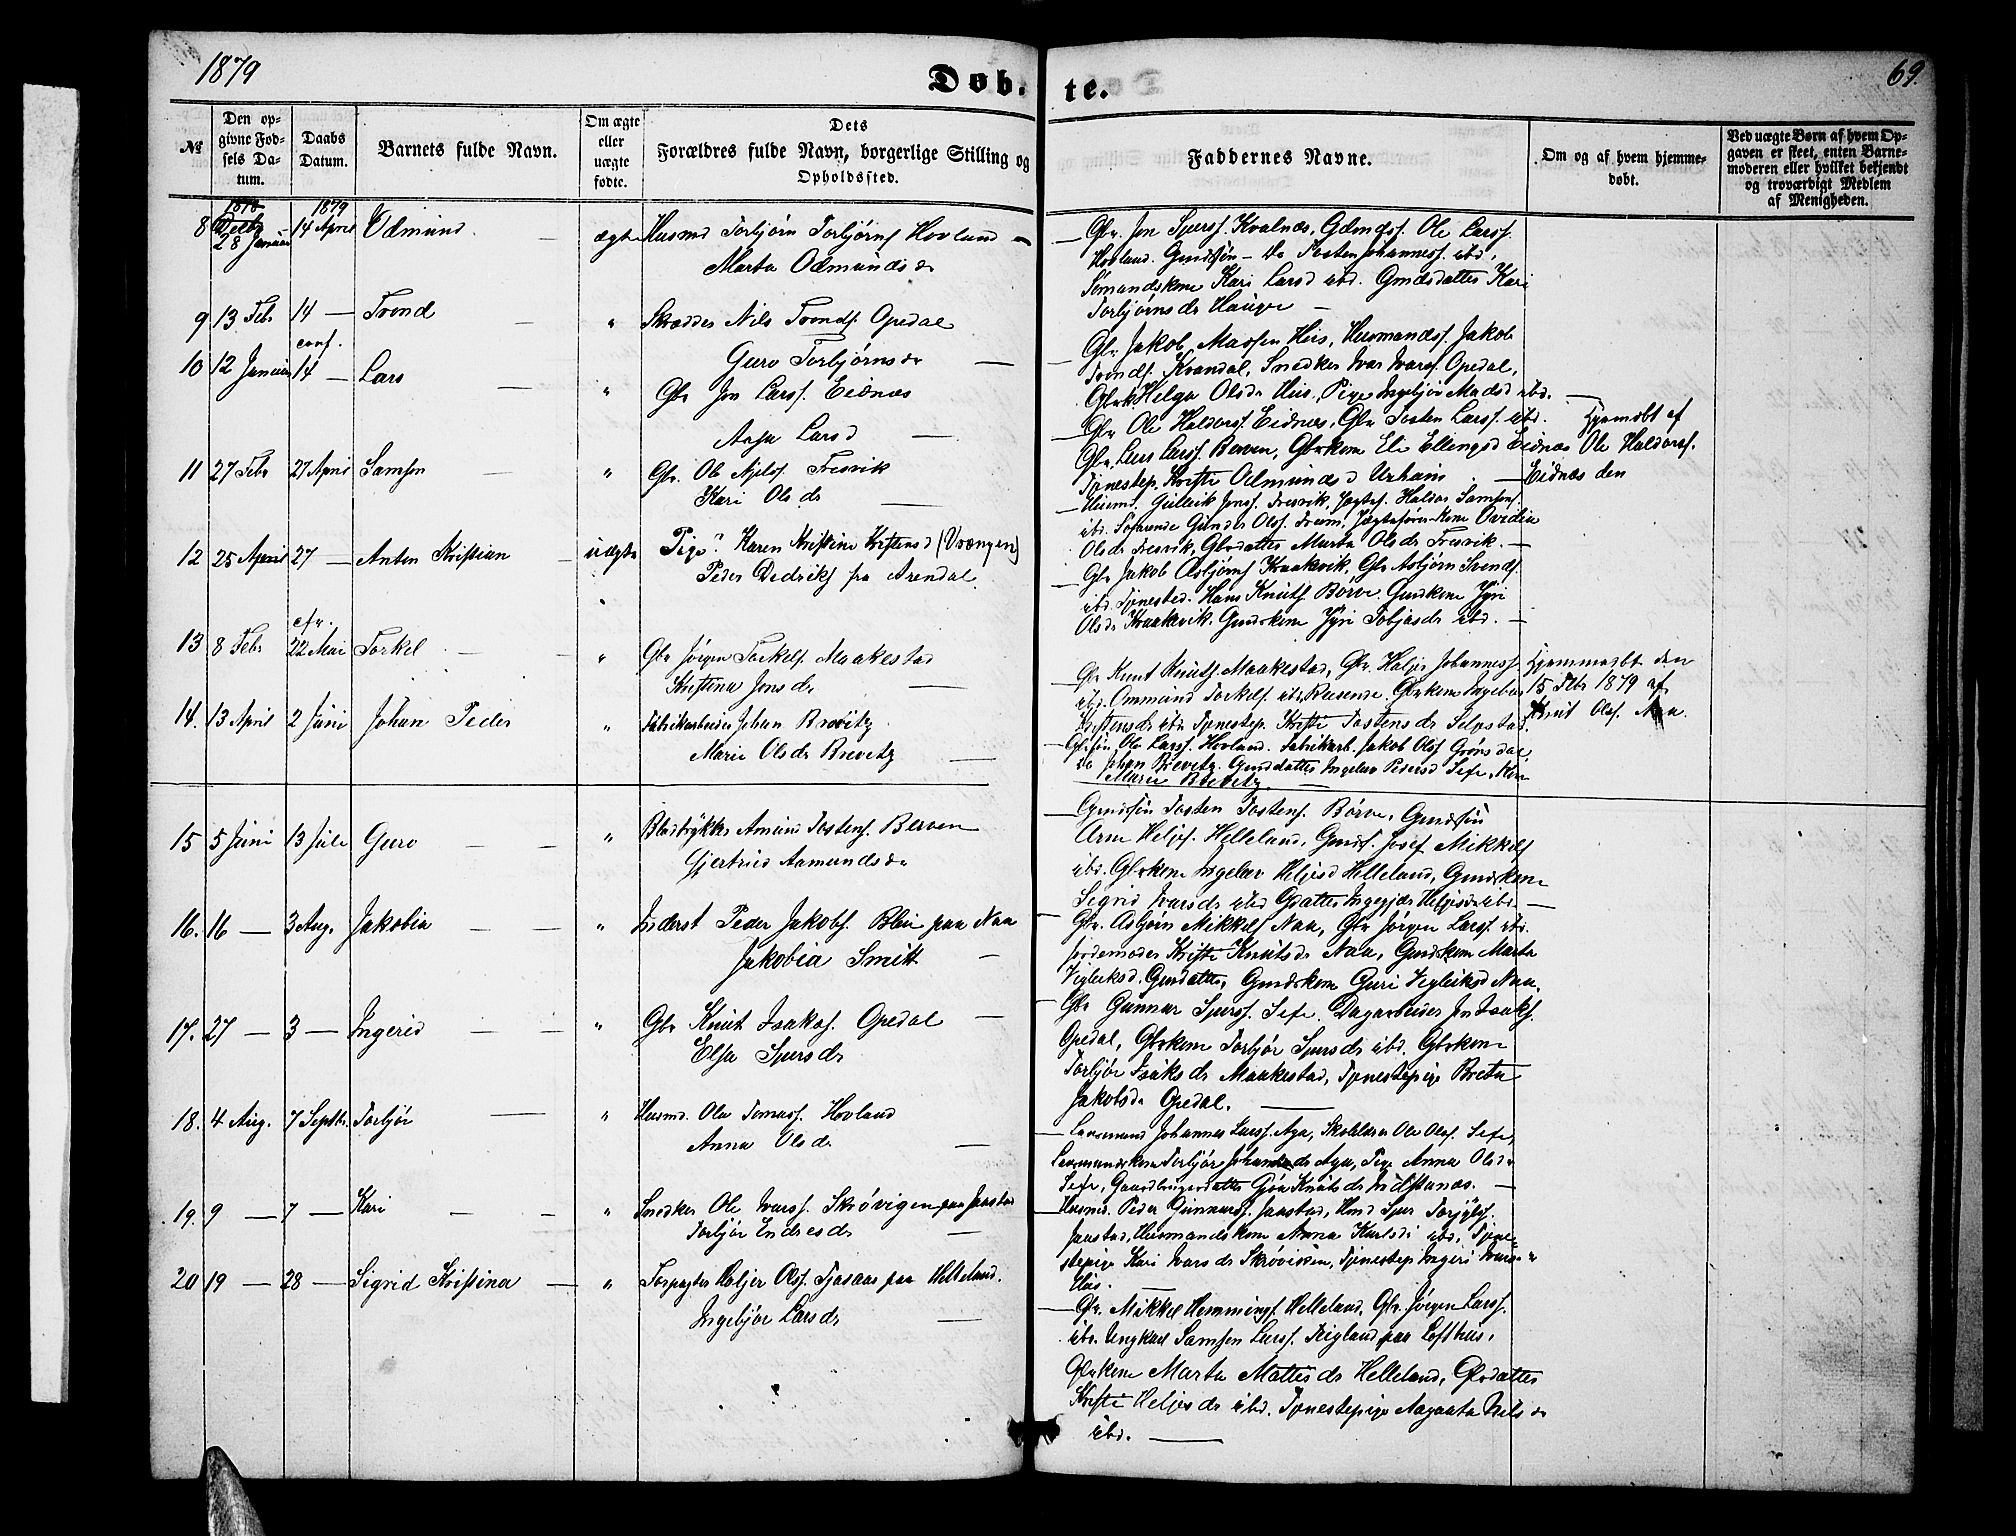 1879
Døb-
te.
69.
No
Den op-
givne Fød-
sels Da-
tum.
Daabs
Datum.
Barnets fulde Navn.
Om ægte
eller
uægte
fødte.
Dets
Forældres fulde Navn, borgerlige Stilling og
Opholdssted.
Faddernes Navne.
Om og af hvem hjemme-
døbt.
Ved uægte Børn af hvem Op-
gaven er skeet, enten Barne-
moderen eller hvilket bekjendt
og troværdigt Medlem
af Menigheden.
1878
1879
8 28 Januar 14 April Odmund — ægte Husmd Torbjørn Torbjørns. Hovland —
Marta Odmundsdr
Gbr. Jon Sjurss. Kvalnes, Gdmdss. Ole Larss.
Hovland. Gmdssøn — Do Tosten Johanness. ibd.
Sømandskone Kari Larsd ibd. Gmdsdatter Kari
Torbjørnsdr Hauge —
9 13 Febr 14 — Trond — " Skrædder Nils Tronds. Opedal
conf.
Guro Torbjørnsdr —
Gbr Jakob Massen Hus, Husmandss. Jakob
Tronds. Kvandal, Snedker Ivar Ivarss. Opedal,
Gbrk. Helga Olsdr Hus, Pige Ingebjør Madsd ibd. —
10 12 Januar 14 — Lars — " Gbr Jon Larss. Eidnes
Aasa Larsd —
Gbr Ole Haldorss. Eidnes, Gbr Tosten Larss. ibd.
Gbr. Lars Larss. Berven, Gbrkone Eli Ellingsd Eidnes
Tjenestep. Kristi Odmundsd Urheim —
Hjemdøbt af
Ole Haldorss.
Eidnes den
11 27 Febr 27 April Samson — " Gbr. Ole Njels. Tresvik
Kari Olsdr —
Husmd. Gulleik Jons. Tresvik, Jagtef. Haldor Samsons.
Olsdr Tresvik, Gbrdatter Marta Olsdr Tresvik. —
12 25 April 27 — Anton Kristian — uægte Pige: Karen Kristine Kristensd (Vrængen)
Peder Dedriks. fra Arendal.
Gbr Jakob Asbjørns. Kraakevik, Gbr Asbjørn Svends.
ibd. Tjenested. Hans Knuts. Børve. Gmdskone Jyri
Olsdr Kraakevik. Gmdskone Jyri Tobjasdr ibd. —
cfr.
13 8 Febr 22 Mai Torkel — " Gbr Jørgen Torkels. Maakestad
Kristina Jonsdr —
Gbr Knut Knuts. Maakestad, Gbr. Haljer Johanness.
Kristensdr ibd Tjenestep. Kristi Tostensdr Selgestad.
Hjemmedøbt den
15 Febr 1879 af
Knut Olss. Naa.
14. 13 April 2 Juni Johan Peder " Fabrikarbeider Johan Brevitz
Marie Olsdr Brevetz —
Gbrsøn Ole Larss. Hovland. Fabrikarb. Jakob Olss Grønsdal
Do Johan Brevetz. Gmdsdatter Ingebor Pedersd Sexe, Kone
Marie Brevetz. —
15 5 Juni 13 Juli Guro — — " Blodtrykker Amund Tostens. Berven
Gjertrud Aamundsdr
Gmdssøn Tosten Tostens. Børve, Gmdssøn
Arne Heljes. Helleland, Gmds. Josef Mikkels
ibd. Gbrkone Ingebor Heljesd Helleland, Gmdskone
Sigrid Ivarsdr ibd Gdatter Ingegjer Heljesdr ibd. —
16. 16 — 3 Aug. Jakobia — — " Inderst Peder Jakobs. Blei paa Naa
Jakobia Smitt —
Gbr. Asbjørn Mikkels Naa, Gbr Jørgen Larss. ibd.
Jordemoder Kristi Knutsdr Naa, Gmdskone Marta
Vigleiksd. Gmdatter, Gmdskone Guri Vigleiksd Naa.
17. 27 — 3 — Ingerid — — " Gbr Knut Isakss. Opedal —
Elsa Sjursdr
Gbr Gunnar Sjurss. Sexe. Dagarbeider Jon Isaks.
Opedal, Gbrkone Torbjør Sjursdr ibd. Gbrkone
Torbjør Isaksdr Maakestad, Tjenestepige Breta
Jakobsdr Opedal. —
18. 4 Aug. 7 Septbr. Torbjør — " Husmd. Ole Tomass. Hovland
Anna Olsdr —
Lensmand Johannes Larss. Aga, Skolelærer Ole Olss. Sexe,
Lensmandskone Torbjør Johannesdr Aga, Pige Anna Olsdr
Sexe, Gaardbrugerdatter Gjøa Knutsdr Indstenæs. —
19. 9 — 7 — Kari — — " Snedker Ole Ivarss. Skrøvigen paa Jaastad
Torbjør Endresdr —
Husmd. Peder Gunnarss. Jaastad, Hmd Sjur Torgjels.
Jaastad, Husmandskone Anna Karlsdr ibd, Tjene-
stepige Kari Ivarsdr Skrøviken, Tjenestepige Ingeri Ivarsdr
Hus. —
20 19 — 28 — Sigrid Kristina — " Forpagter Haljer Olss. Tjoaas paa Helleland.
Ingebjør Larsdr —
Gbr. Mikkel Hemmings. Helleland, Gbr. Jørgen Larss.
ibd. Ungkarl Samson Larss. Trigland paa Lofthus,
Gbrkone Marta Mattisdr Helleland, Gbrdatter
Kristi Heljesdr ibd. Tjenestepige Aagaata Nilsdr
ibd. —